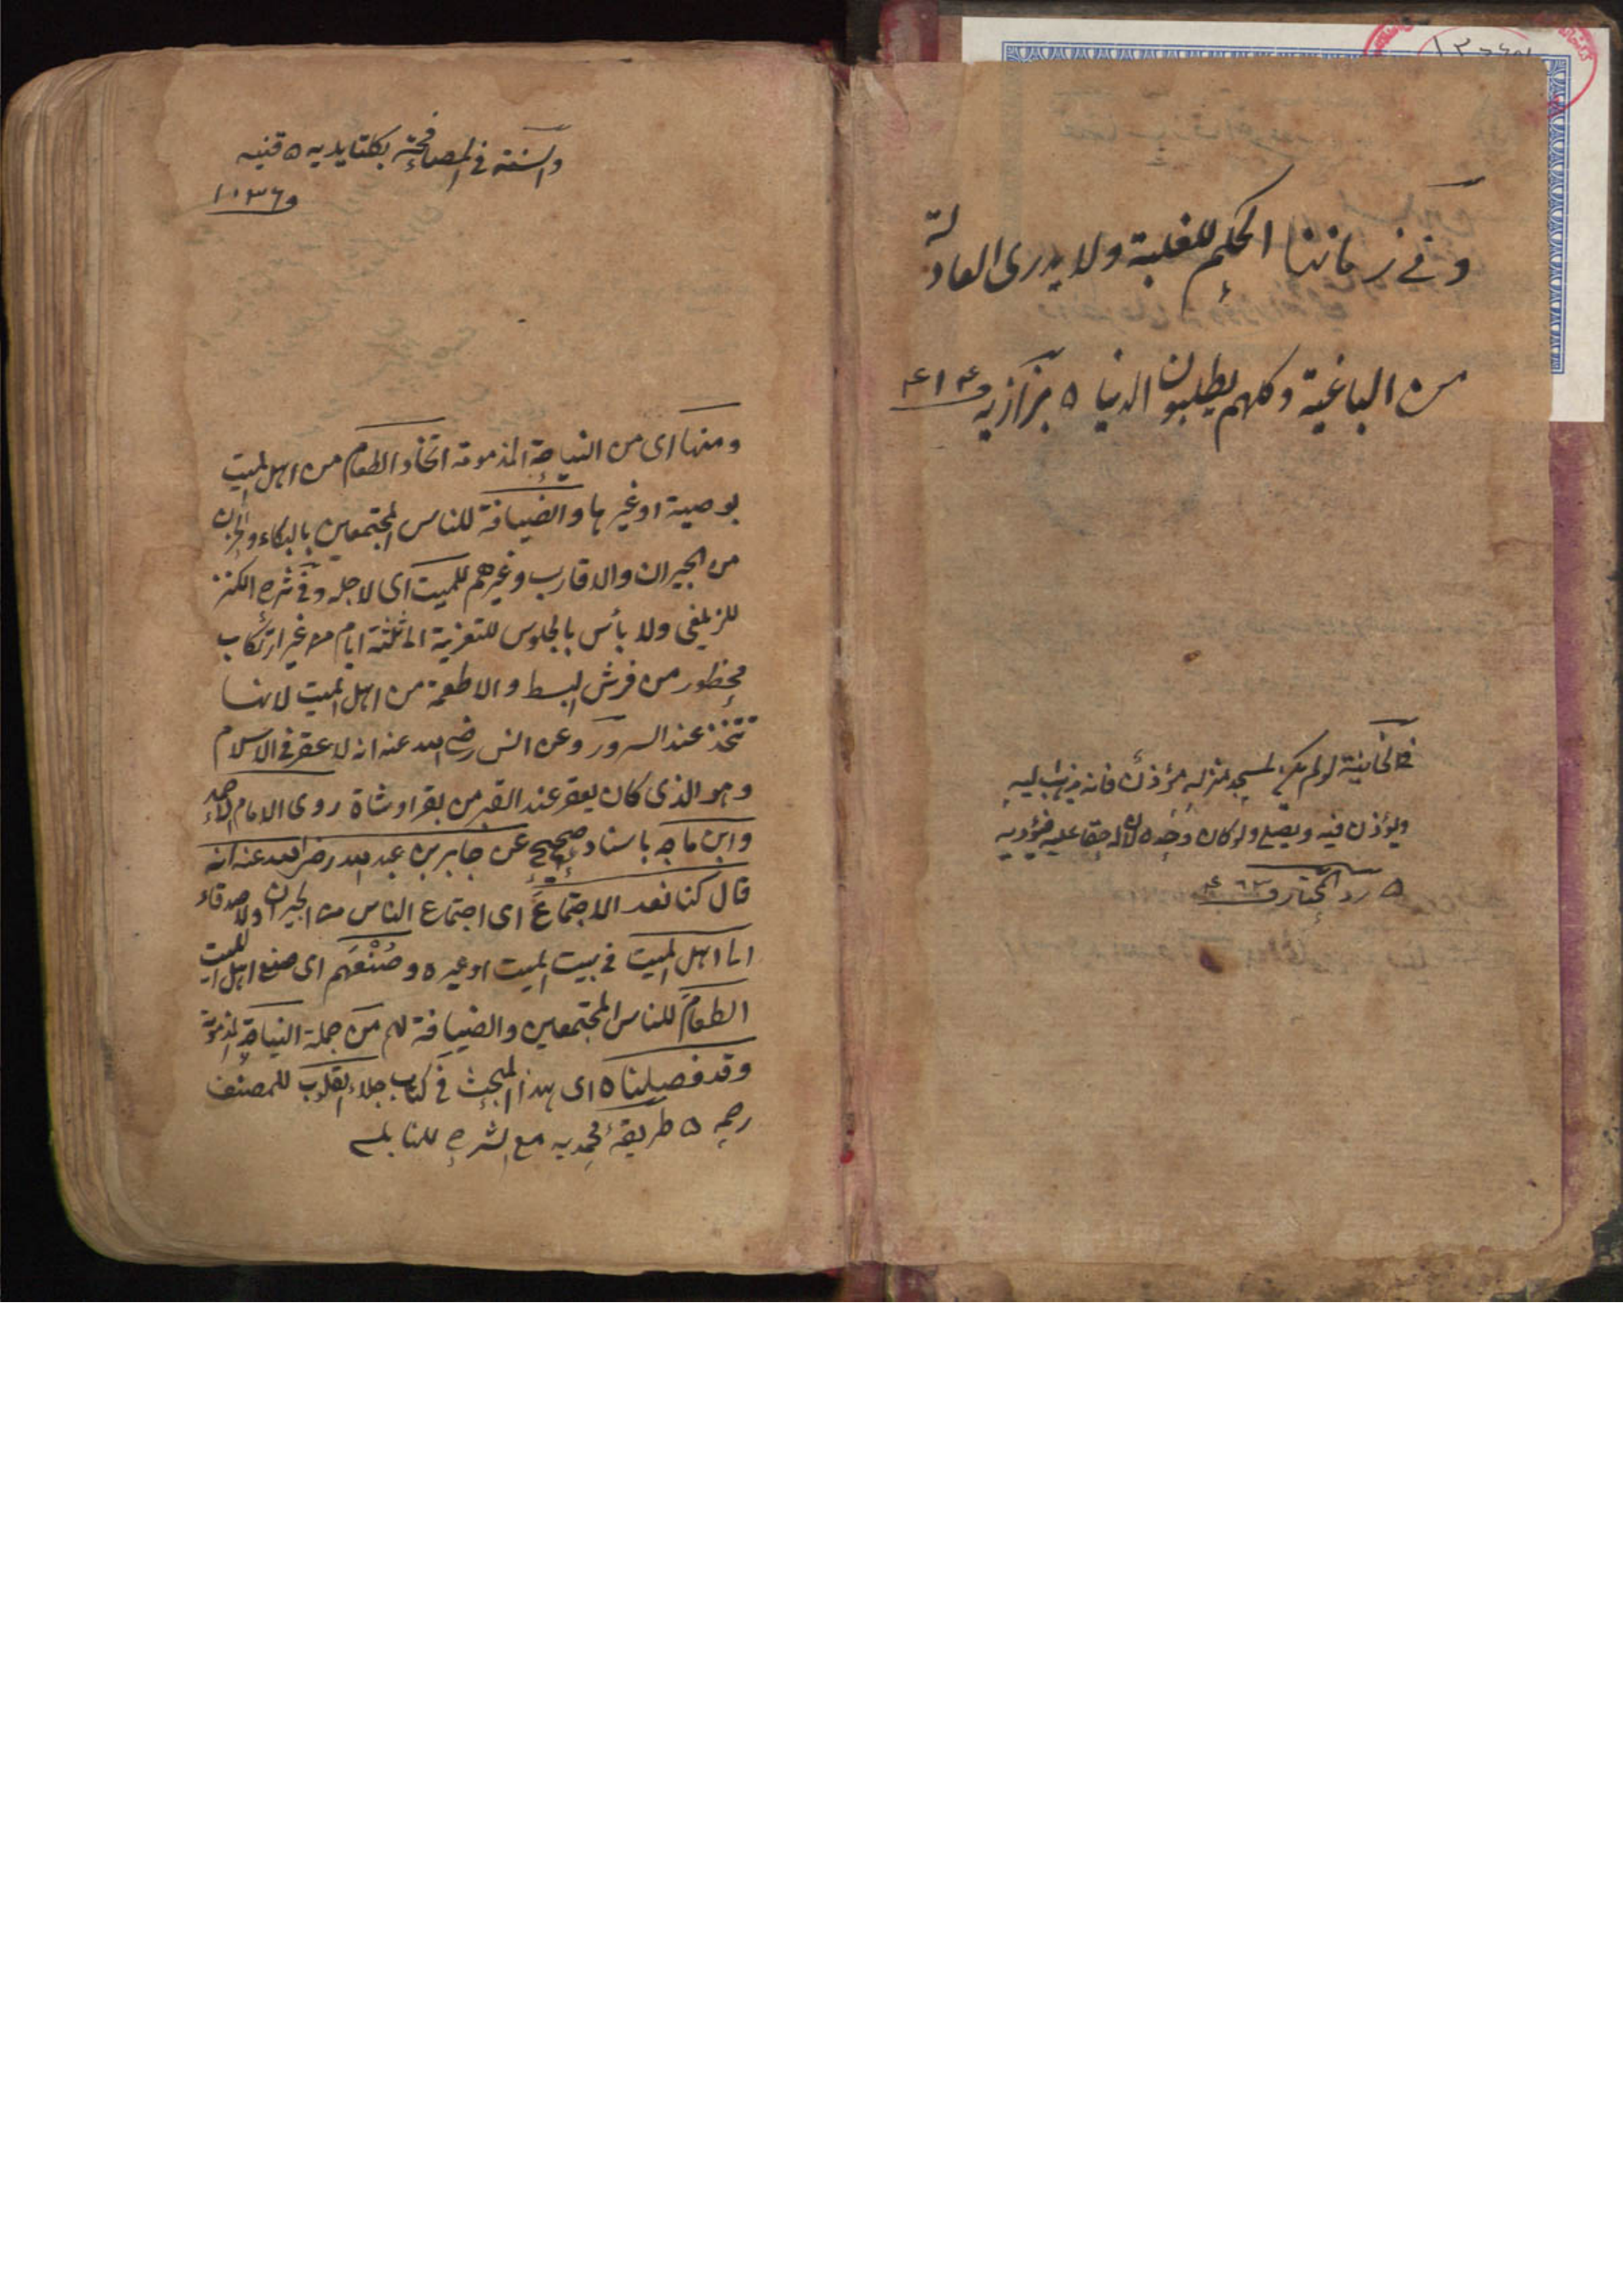 وفي زماننا الحكم للغلبة ولا يدرى العادلة
من الباغية وكلهم يطلبون الدنيا ه بزازيه و ٤١٤
في الخانية لو لم يكن لمسجد منزله مؤذن فانه يذهب اليه
ويؤذن فيه ويصلي ولو كان وحده لان له حقا عليه فيؤديه
ه رد المحتار و
والسنة في المصافحة بكلتا يديه ه قنيه
و ١٠٣٦
ومنها اى من النياحة المذمومة اتخاذ الطعام من اهل الميت
بوصية او غيرها والضيافة للناس المجتمعين بالبكاء والحزن
من الجيران والاقارب وغيرهم للميت اى لاجله وفى شرح الكنز
للزيلعى ولا بأس بالجلوس للتعزية الى ثلثة ايام من غير ارتكاب
محظور من فرش البسط والاطعمة من اهل الميت لانها
تتخذ عند السرور وعن انس رضي الله عنه انه لا عقر فى الاسلام
وهو الذى كان يعقر عند القبر من بقر او شاة روى الامام احمد
وابن ماجه باسناد صحيح عن جابر بن عبد الله رضي الله عنه انه
قال كنا نعد الاجتماع اى اجتماع الناس من الجيران والاصدقاء
الى اهل الميت فى بيت الميت او غيره وصنعهم اى صنع اهل الميت
الطعام للناس المجتمعين والضيافة لهم من جملة النياحة المذمومة
وقد فصلناه اى هذا المبحث فى كتاب جلاء القلوب للمصنف
رحمه ه طريقهٔ محمديه مع الشرح للنابلسى